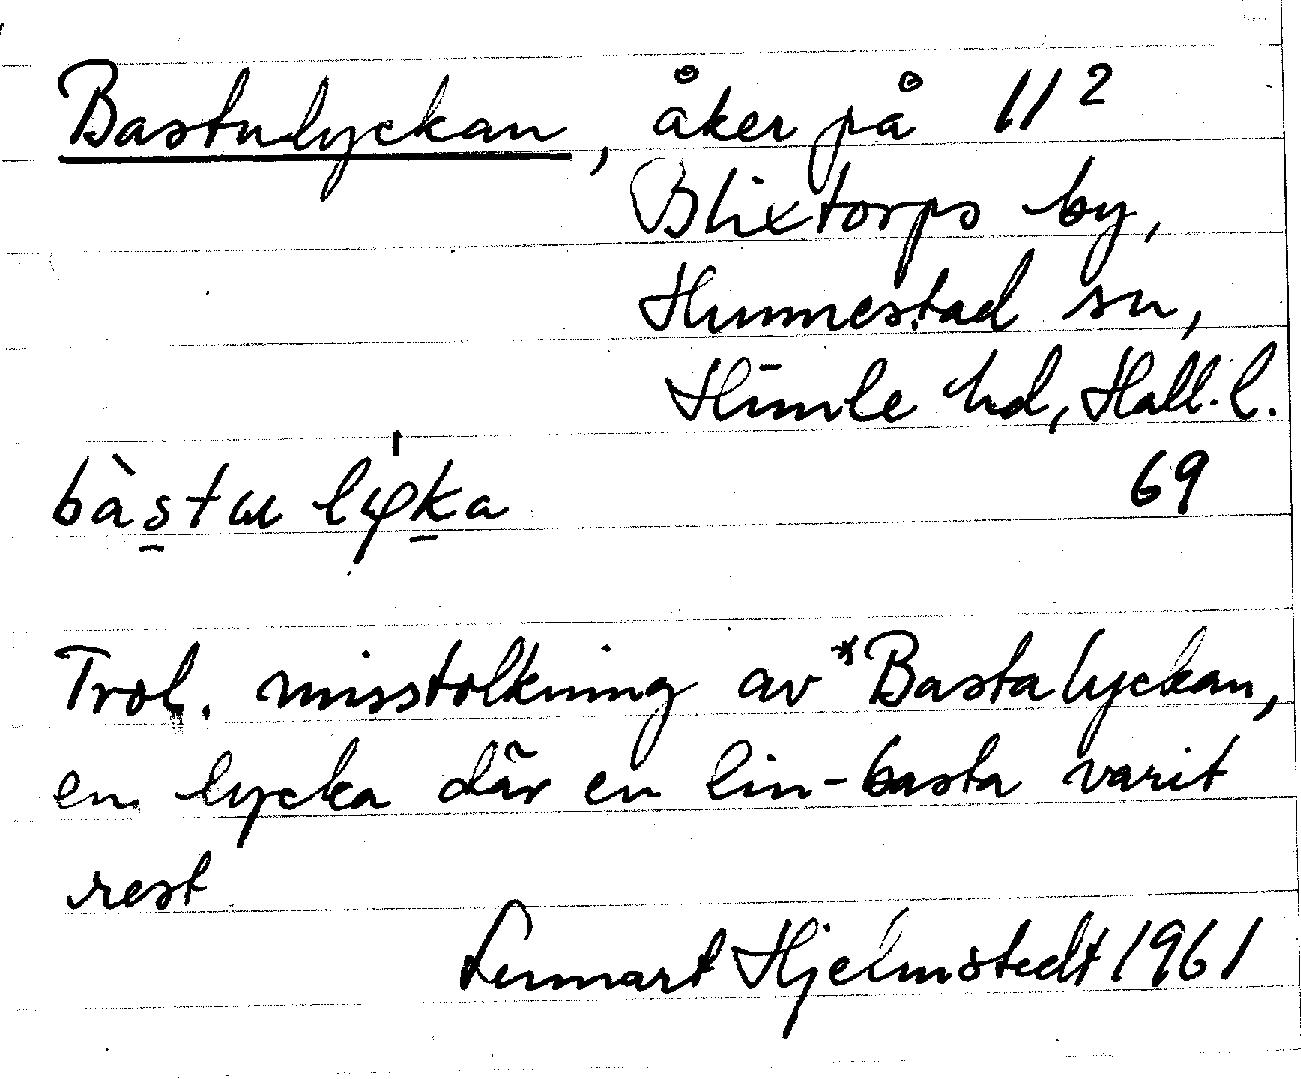 Bastulyckan, åker på 11²
Blixtorps by,
Hunnestad sn,
Himle hd, Hall. l.
69
Trol. misstolkning av *Bastalyckan,
en lycka där en lin-basta varit
rest
Lennart Hjelmstedt 1961